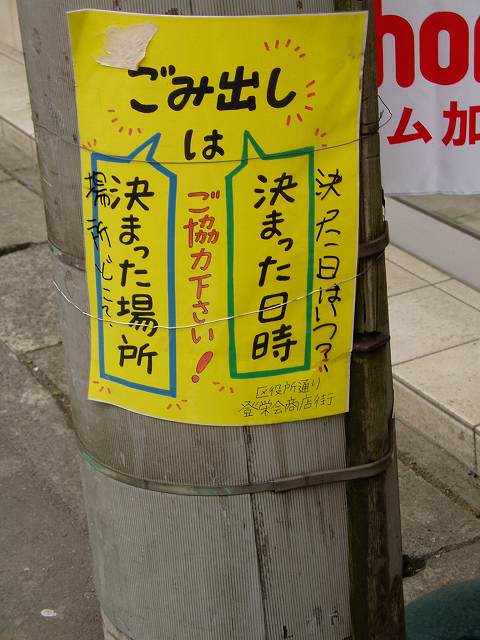 ごみ出し
は
決った日はいつ?
決まった日時
ご協力下さい!
決まった場所
場所どこで
区役所通り
登栄会商店街
ム加